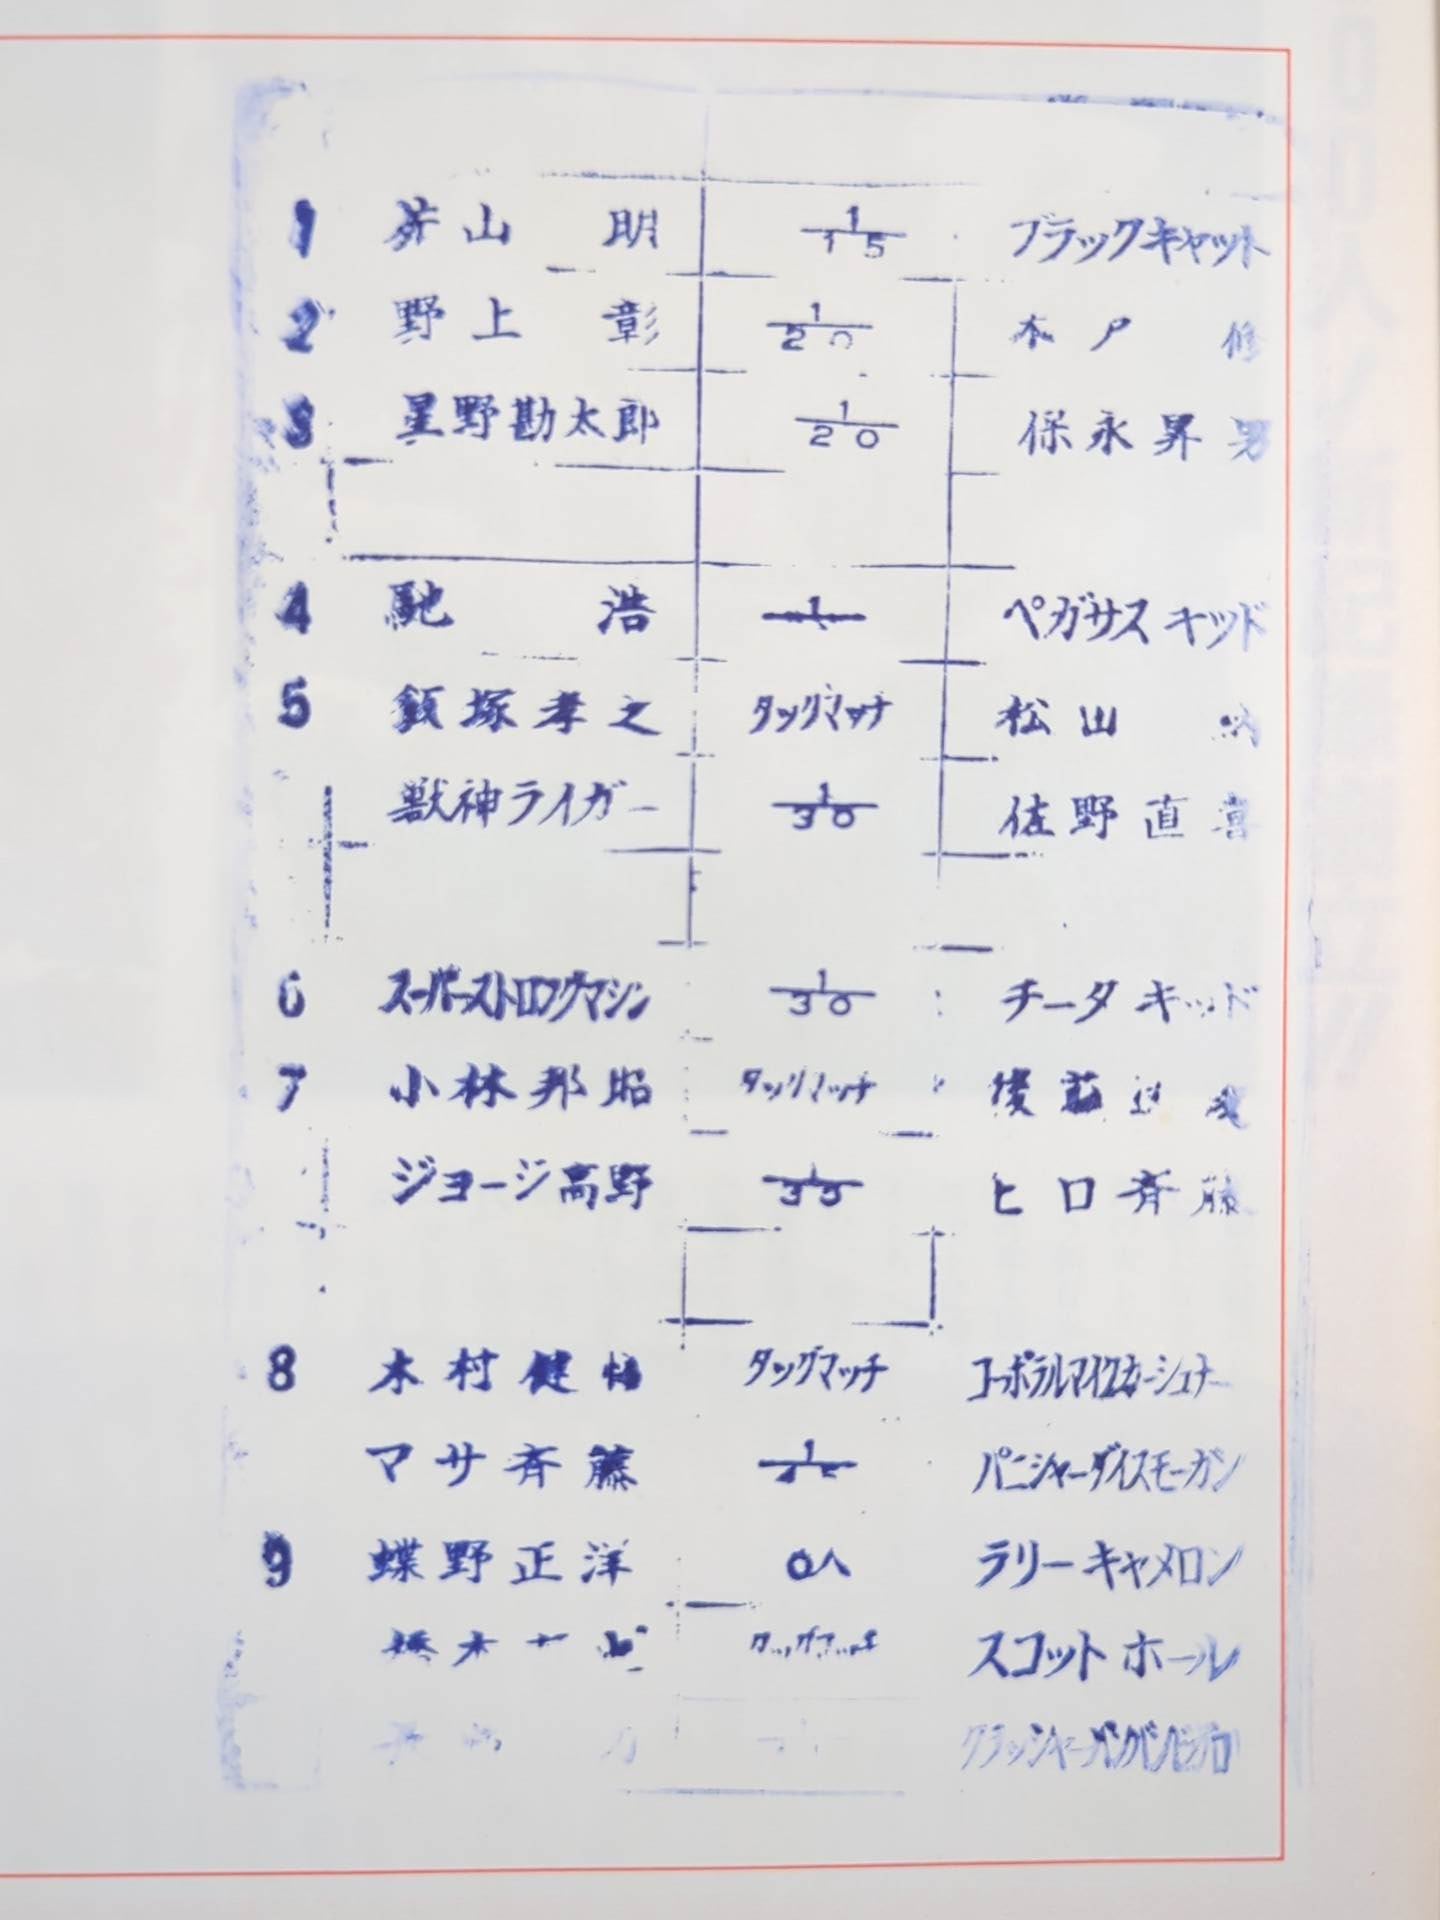 1 片山 明 1/15 ブラックキャット
2 野上 彰 1/20 木戸 修
3 星野勘太郎 1/20 保永昇男
4 馳 浩 1 ペガサスキッド
5 飯塚孝之 タッグマッチ 松山
獣神ライガー 1/30 佐野直喜
6 スーパーストロングマシン 1/30 チータキッド
7 小林邦昭 タッグマッチ 後藤
ジョージ高野 1/ ヒロ斉藤
8 木村健悟 タッグマッチ コーポラルマイクカーシュナー
マサ斉藤 1/45 パニシャーダイスモーガン
9 蝶野正洋 6人 ラリーキャメロン
タッグマッチ スコットホール
クラッシャーバンバンビガロ